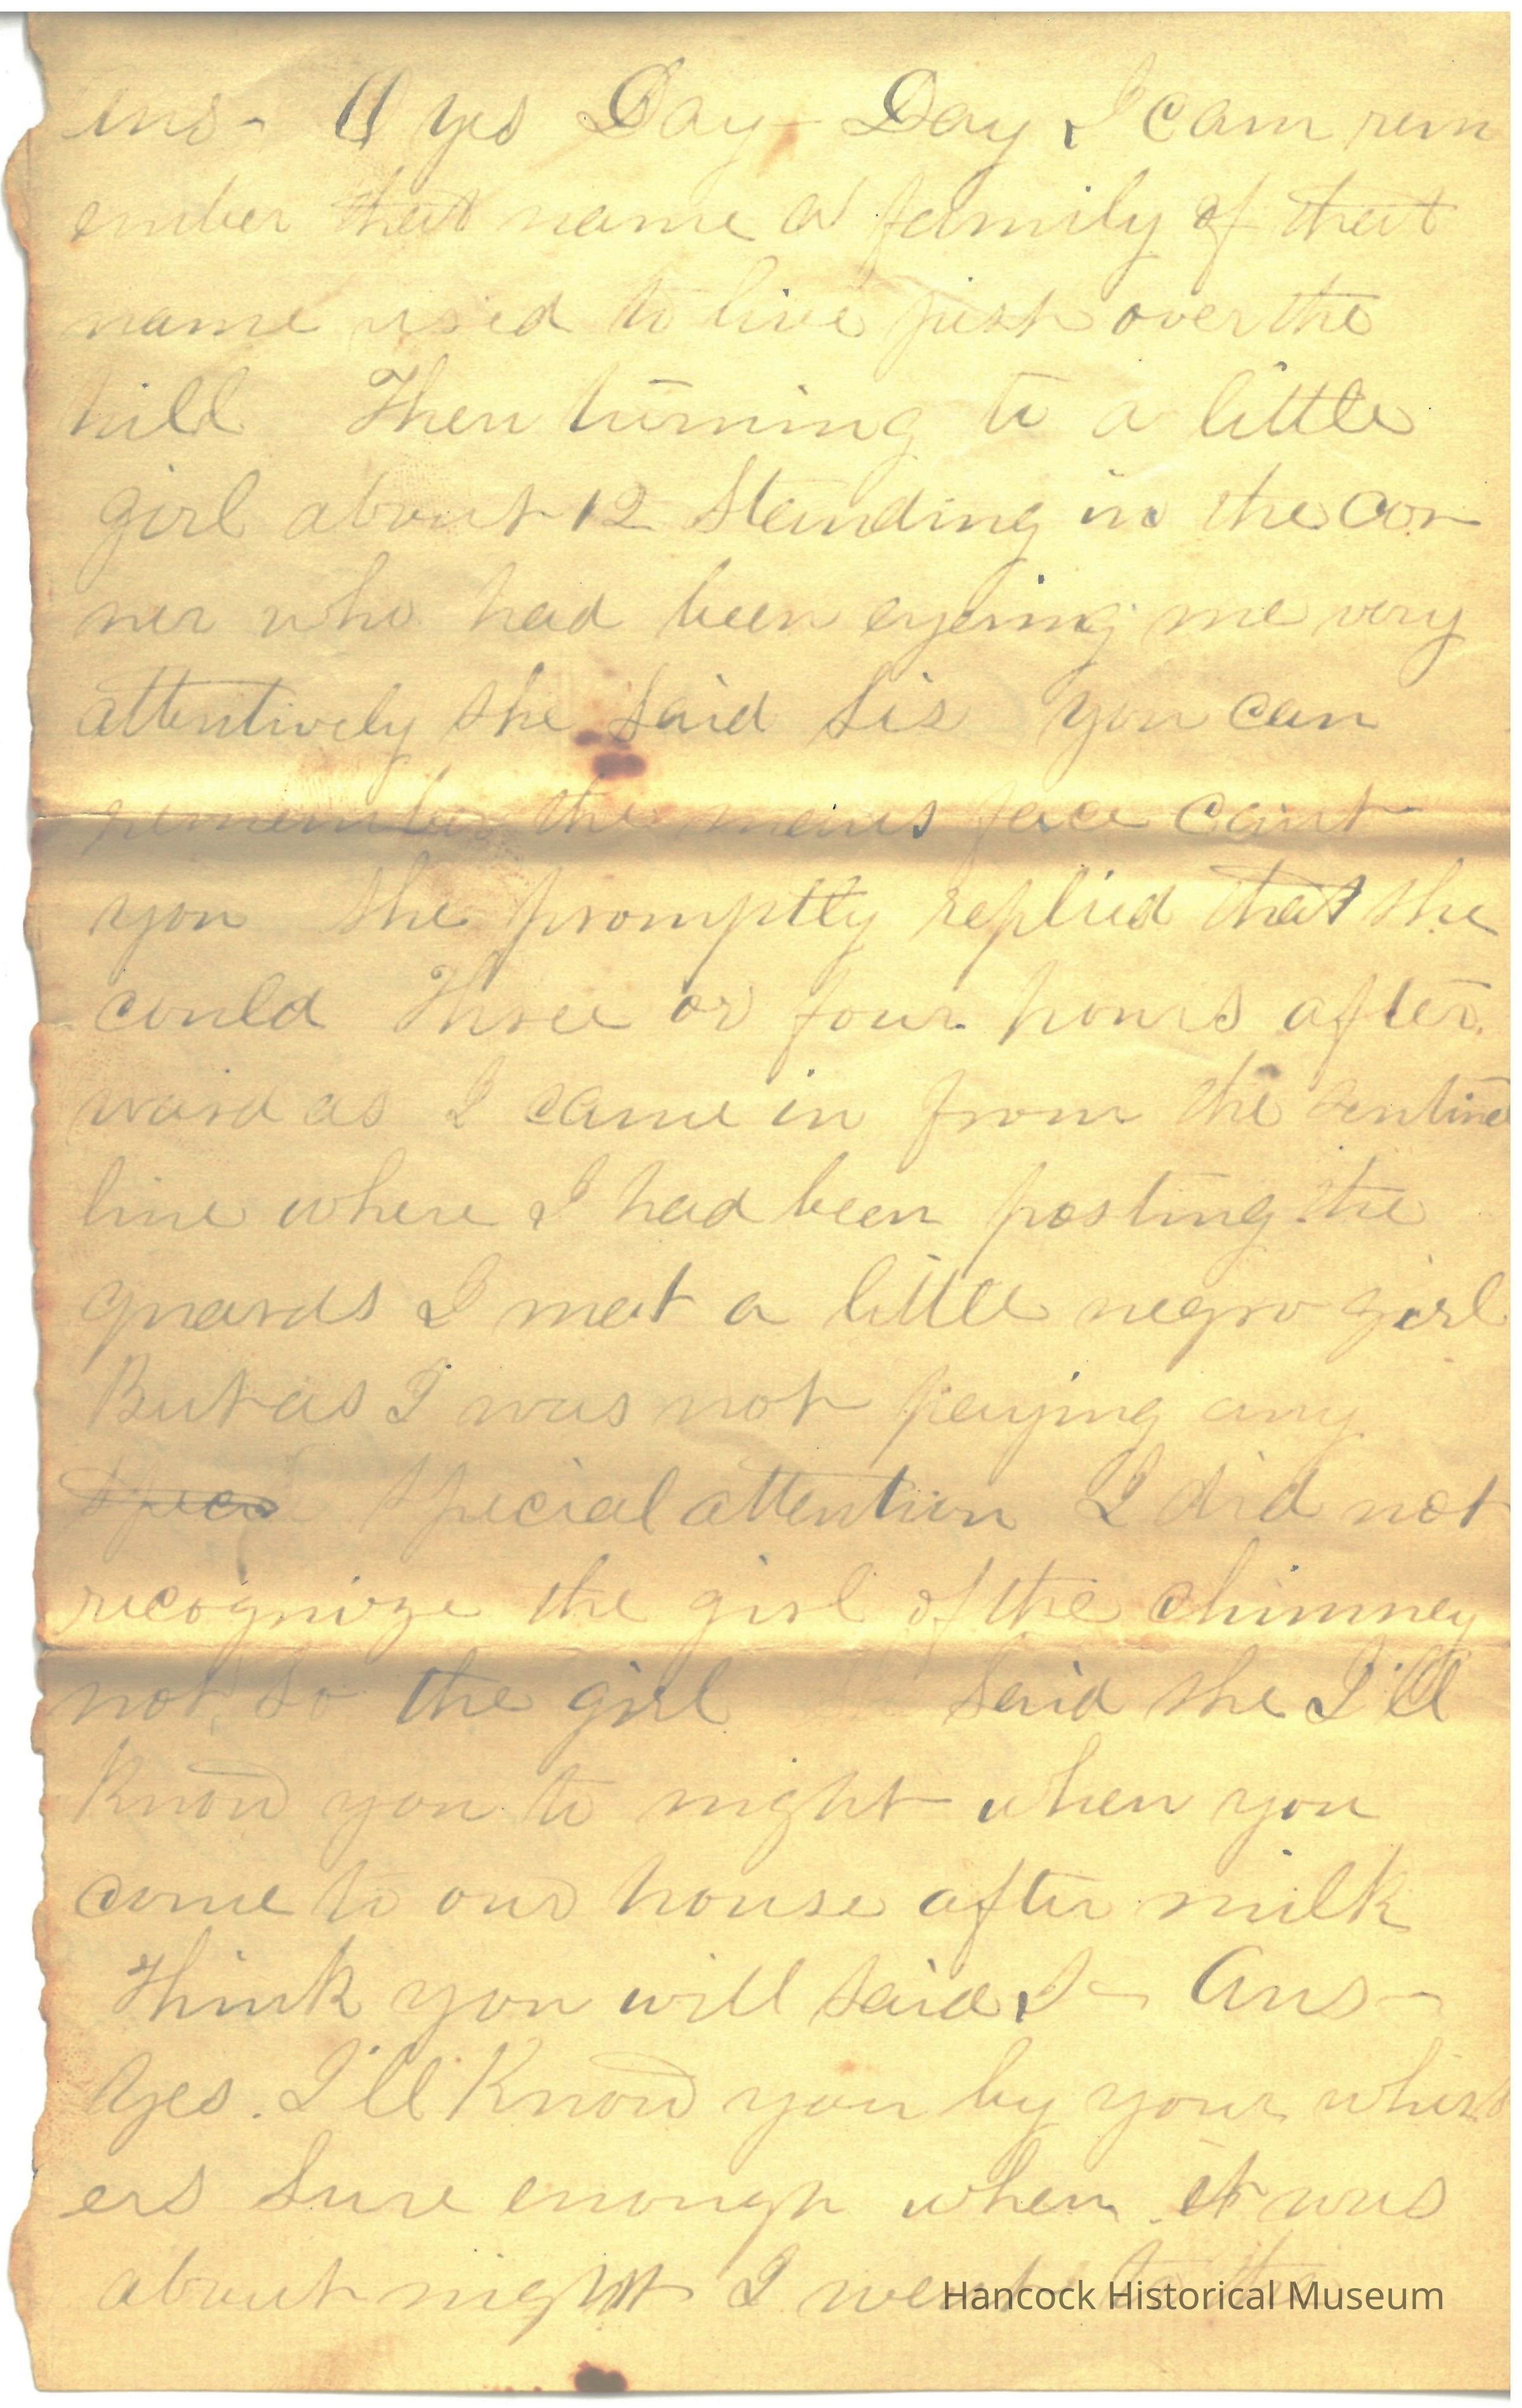 ens - O yes Day - Day I can rem
ember that name a family of that
name used to live just over the
hill Then turning to a little
girl about 12 Standing in the cor
ner who had been eyeing me very
attentively she said Sis you can
remember the mans face cant
you She promptly replied that she
could Three or four hours after
ward as I came in from the sentinel
line where I had been posting the
guards I met a little negro girl
But as I was not paying any
special attention I did not
recognize the girl of the chimney
not so the girl Said she I'll
Know you to night when you
come to our house after milk
Think you will said I - Ans -
Yes. I'll Know you by your whisk
ers Sure enough when it was
about night I went to the
Hancock Historical Museum